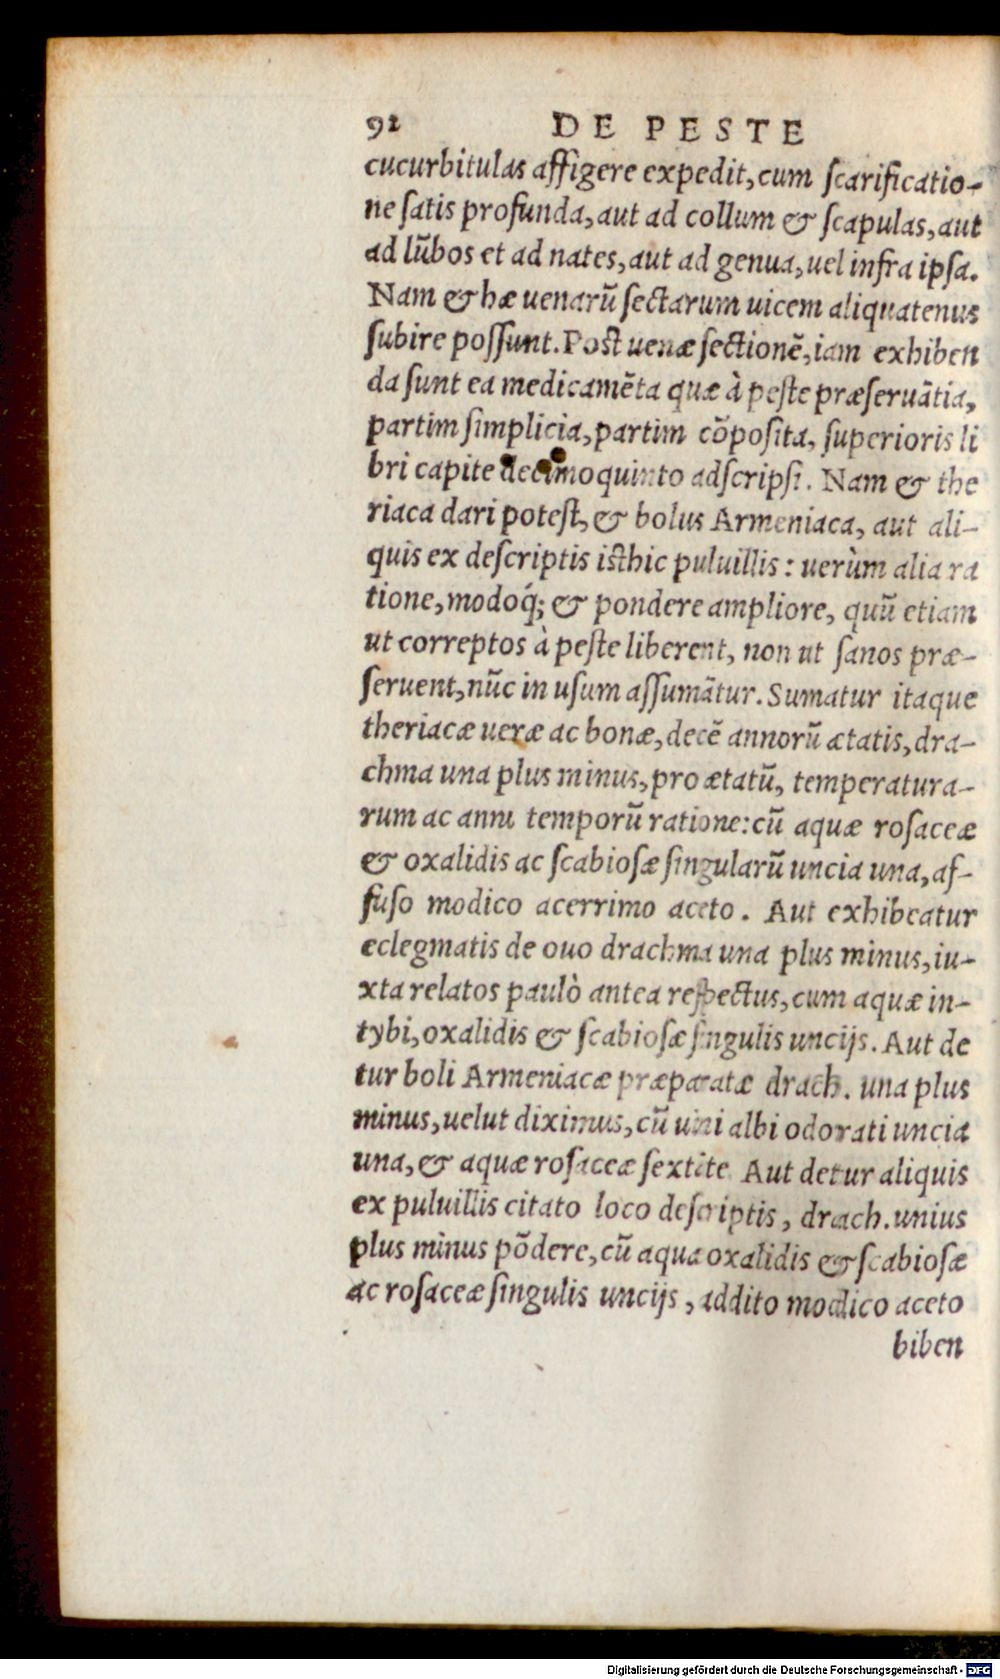 92 DE PESTE
cucurbitulas affigere expedit, cum scarificatio-
ne satis profunda, aut ad collum & scapulas, aut
ad lũbos et ad nates, aut ad genua, uel infra ipsa.
Nam & hæ uenarũ sectarum uicem aliquatenus
subire possunt. Post uenæ sectionẽ, iam exhiben
da sunt ea medicamẽta quæ à peste præseruãtia,
partim simplicia, partim cõposita, superioris li
bri capite decimoquinto adscripsi. Nam & the
riaca dari potest, & bolus Armeniaca, aut ali-
quis ex descriptis isthic puluillis: uerùm alia ra
tione, modoq́; & pondere ampliore, quũ etiam
ut correptos à peste liberent, non ut sanos præ-
seruent, nũc in usum assumãtur. Sumatur itaque
theriacæ ueræ ac bonæ, decẽ annorũ ætatis, dra-
chma una plus minus, pro ætatũ, temperatura-
rum ac anni temporũ ratione: cũ aquæ rosaceæ
& oxalidis ac scabiosæ singularũ uncia una, af-
fuso modico acerrimo aceto. Aut exhibeatur
eclegmatis de ouo drachma una plus minus, iu-
xta relatos paulò antea respectus, cum aquæ in-
tybi, oxalidis & scabiosæ singulis uncijs. Aut de
tur boli Armeniacæ præparatæ drach. una plus
minus, uelut diximus, cũ uini albi odorati uncia
una, & aquæ rosaceæ Aut detur aliquis
ex puluillis citato loco descriptis, drach. unius
plus minus põdere, cũ aqua oxalidis & scabiosæ
ac rosaceæ singulis uncijs, addito modico aceto
biben
Digitalisierung gefördert durch die Deutsche Forschungsgemeinschaft - DFG